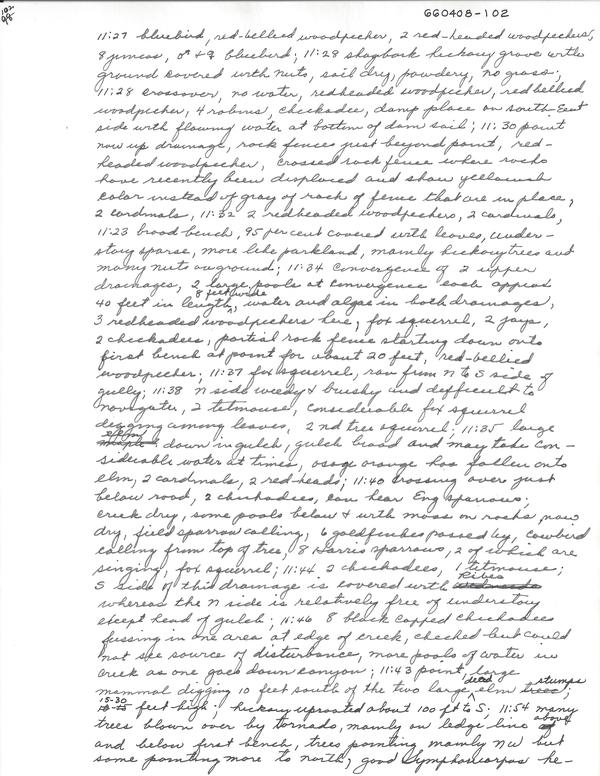 102
98
660408-102
11:27 bluebird, red-bellied woodpecker, 2 red-headed woodpeckers,
8 juncos, ♂ + ♀ bluebird; 11:28 shagbark hickory grove with
ground covered with nuts, soil dry, powdery, no grass;
11:28 crossover, no water, redheaded woodpecker, red bellied
woodpecker, 4 robins, chickadee, damp place on south-East
side with flowing water at bottom of dam sail; 11:30 point
now up drainage, rock fence just beyond point, red-
headed woodpecker, crossed rock fence where rocks
have recently been displaced and show yellowish
color instead of gray of rock of fence that are in place,
2 cardinals, 11:32 2 redheaded woodpeckers, 2 cardinals,
11:23 broad bench, 95 per cent covered with leaves, under-
story sparse, more like parkland, mainly hickory trees and
many nuts on ground; 11:34 convergence of 2 upper
drainages, 2 large pools at convergence each approx
40 feet in length, 8 feet wide water and algae in both drainages,
3 redheaded woodpeckers here, fox squirrel, 2 jays,
2 chickadees, partial rock fence starting down onto
first bench at point for about 20 feet, red-bellied
woodpecker; 11:37 fox squirrel, ran from N to S side of
gully; 11:38 N side weedy & brushy and difficult to
navigate, 2 titmouse, considerable fox squirrel
digging among leaves, 2 nd tree squirrel; 11:35 large
elm down in gulch, gulch broad and may take con-
siderable water at times, osage orange has fallen onto
elm, 2 cardinals, 2 red-heads; 11:40 crossing over just
below road, 2 chickadees, can hear Eng sparrows;
creek dry, some pools below & with moss on rocks, now
dry, field sparrow calling, 6 goldfinches passed by, cowbird
calling from top of tree, 8 Harris sparrows, 2 of which are
singing, fox squirrel; 11:44 2 chickadees, 1 titmouse;
S side of this drainage is covered with Ribes
whereas the N side is relatively free of understory
except head of gulch; 11:46 8 black capped chickadees
fussing in one area at edge of creek, checked but could
not see source of disturbance, more pools of water in
creek as one goes down canyon; 11:43 point, large
mammal digging 10 feet south of the two large dead elm stumps;
15-30 feet high; hickory uprooted about 100 ft to S; 11:54 many
trees blown over by tornado, mainly on ledge line above
and below first bench, trees pointing mainly NW but
some pointing more to north; good symphoricarpos he-